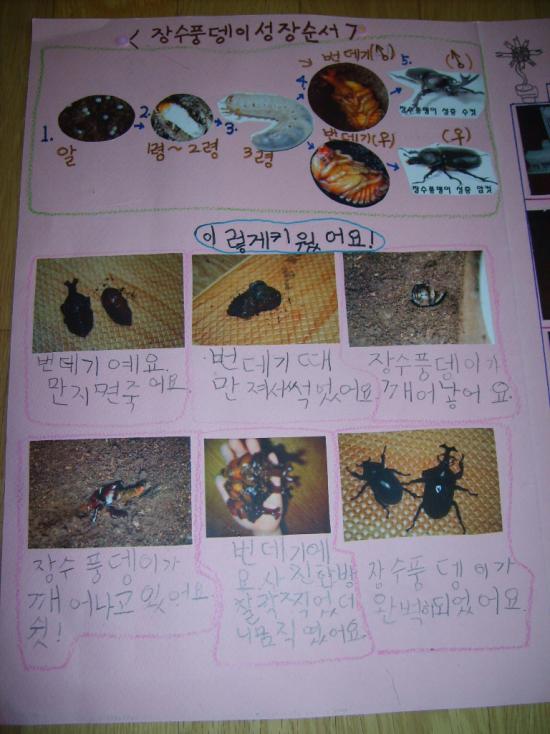 < 장수풍뎅이성장순서 >
1. 알
2. 1령~2령
3. 3령
4. 번데기(♂)
번데기(우)
5. (♂)
장수풍뎅이 성충 수컷
(우)
장수풍뎅이 성충 암컷
이렇게키웠어요!
번데기예요.
만지면죽어요.
번데기때
만져서썩었어요.
장수풍뎅이가
깨어낳어요.
장수풍뎅이가
깨어나고있어요.
쉿!
번데기에
모사진한방
찰칵찍었더
니움직였어요.
장수풍뎅이가
완벽하되었어요.